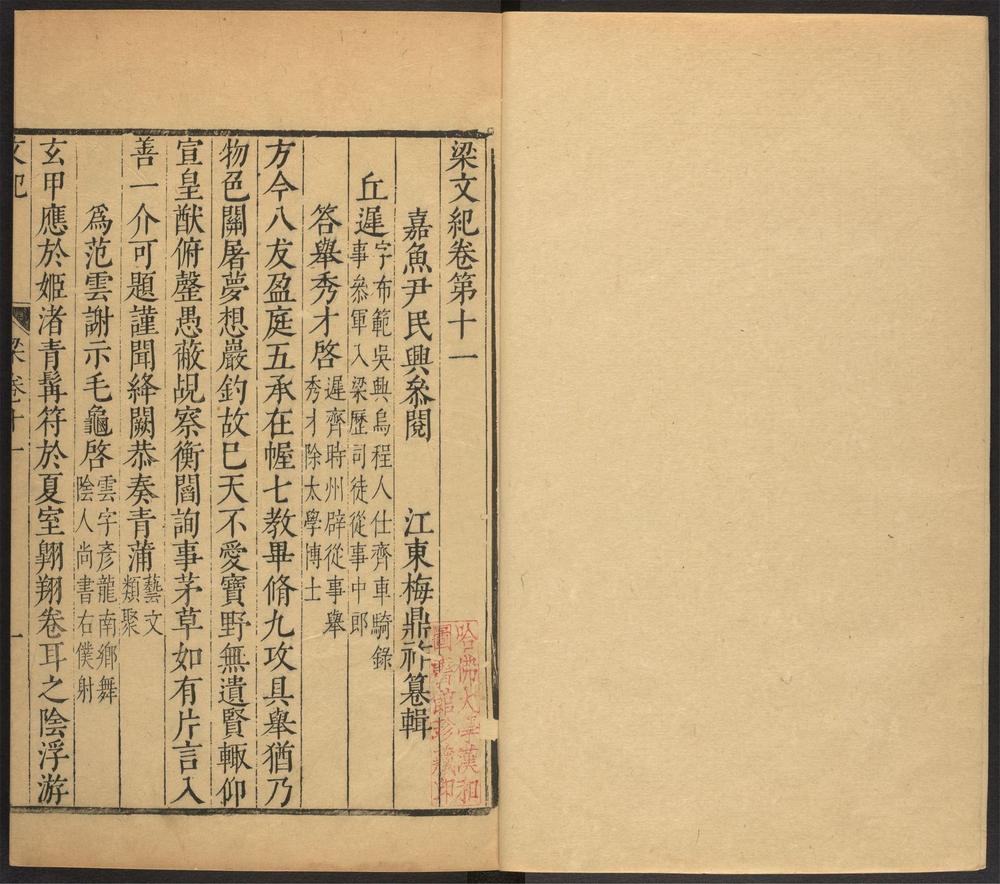 梁文紀卷第十一
嘉魚尹民興叅閱　江東梅鼎祚纂輯
丘遲字布範吳興烏程人仕齊車騎錄
事叅軍入梁歷司徒從事中郎
答舉秀才啓遲齊時州辟從事舉
秀才除太學博士
方今八友盈庭五承在幄七教畢脩九攻具舉猶乃
物色關屠夢想巖釣故已天不愛寶野無遺賢輙仰
宣皇猷俯罄愚蔽覘察衡閭詢事茅草如有片言入
善一介可題謹聞絳闕恭奏青蒲藝文
類聚
爲范雲謝示毛龜啓雲字彥龍南鄉舞
陰人尚書右僕射
玄甲應於姬渚青髯符於夏室翺翔卷耳之陰浮游
文紀　梁卷十一　一
哈佛大學漢和
圖書館珍藏印